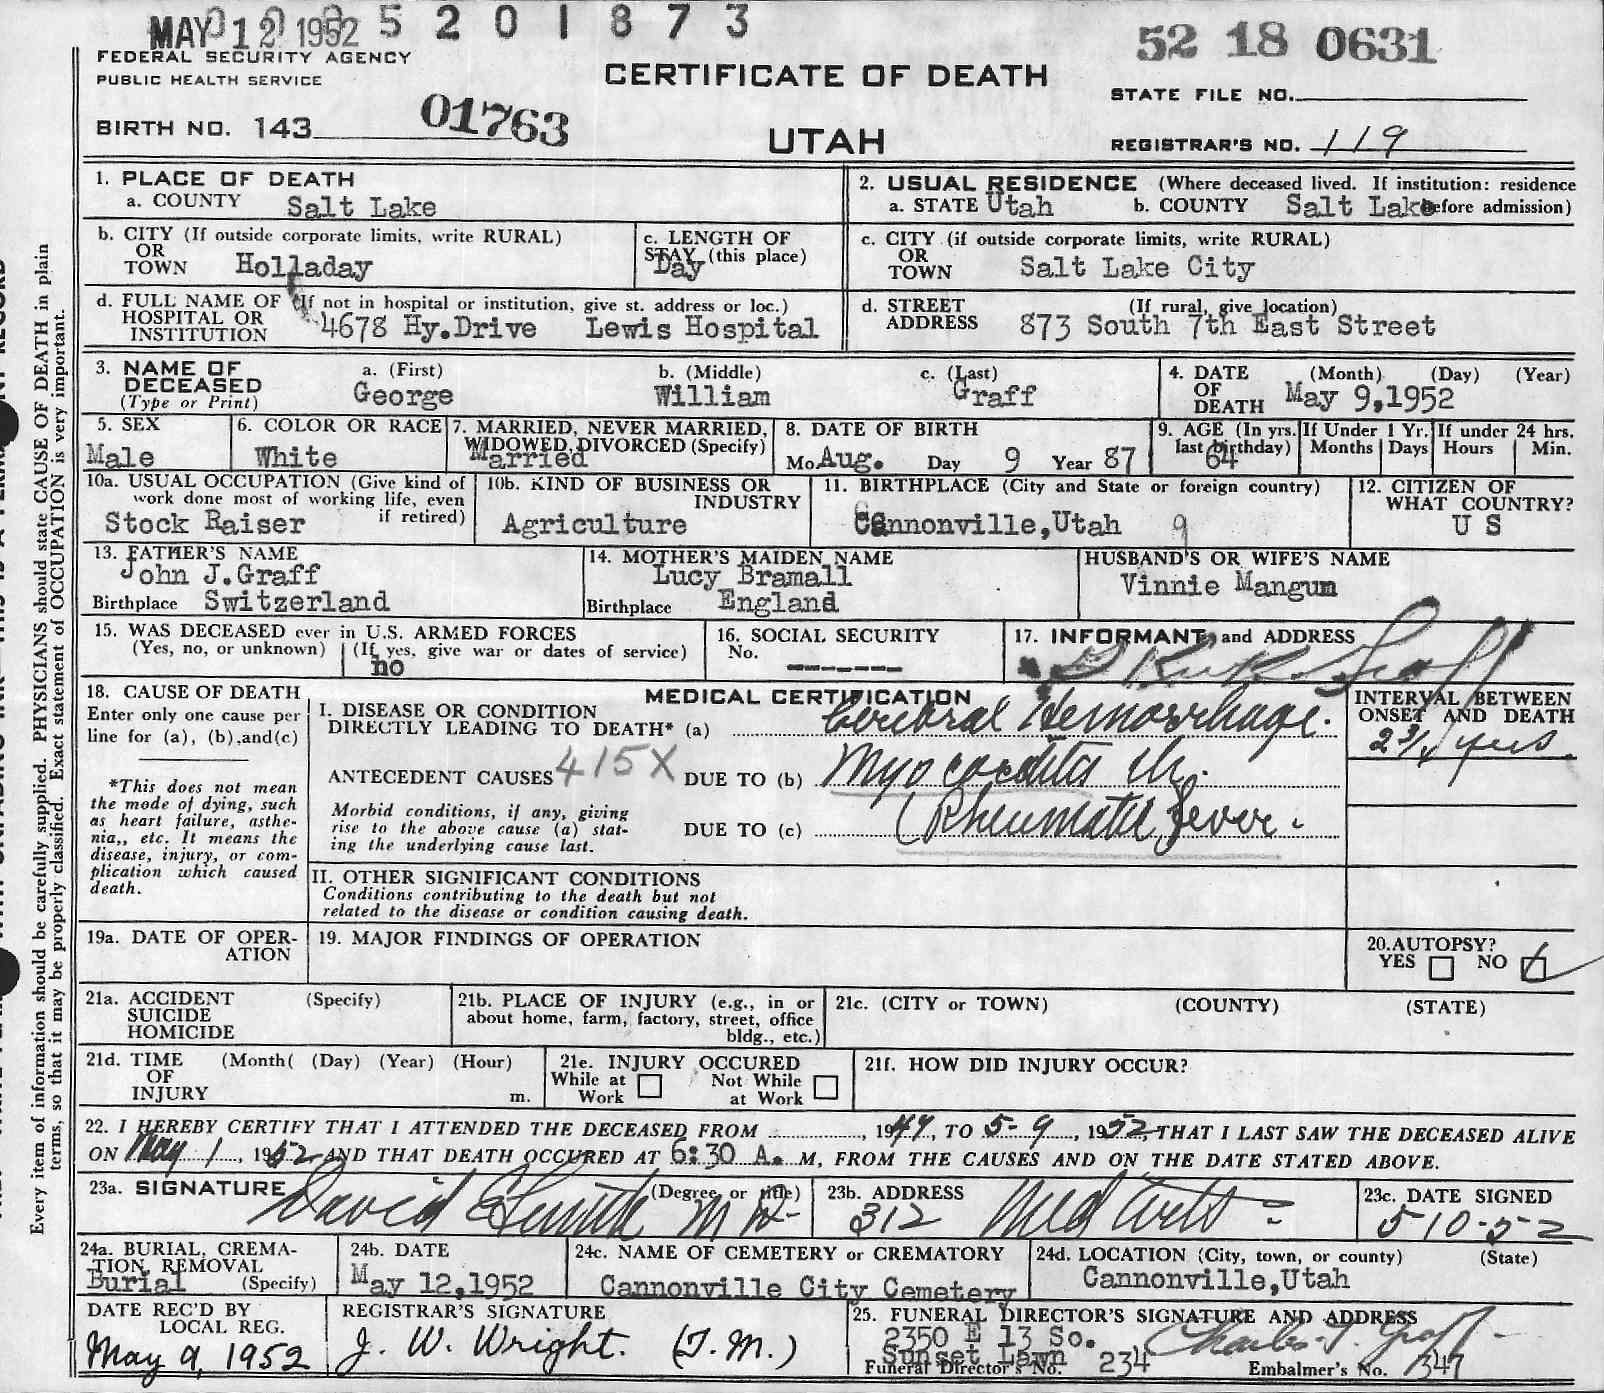 MAY 12 1952 5 2 0 1 8 7 3
52 18 0631
FEDERAL SECURITY AGENCY
PUBLIC HEALTH SERVICE
CERTIFICATE OF DEATH
STATE FILE NO.
BIRTH NO. 143
01763
UTAH
REGISTRAR'S NO. 119
1. PLACE OF DEATH
a. COUNTY Salt Lake
2. USUAL RESIDENCE (Where deceased lived. If institution: residence
a. STATE Utah b. COUNTY Salt Lake before admission)
b. CITY (If outside corporate limits, write RURAL)
OR
TOWN Holladay
c. LENGTH OF
STAY (this place)
Day
c. CITY (if outside corporate limits, write RURAL)
OR
TOWN Salt Lake City
d. FULL NAME OF (If not in hospital or institution, give st. address or loc.)
HOSPITAL OR
INSTITUTION 4678 Hy.Drive Lewis Hospital
d. STREET (If rural, give location)
ADDRESS 873 South 7th East Street
3. NAME OF a. (First) b. (Middle) c. (Last)
DECEASED
(Type or Print) George William Graff
4. DATE (Month) (Day) (Year)
OF
DEATH May 9,1952
5. SEX
Male
6. COLOR OR RACE
White
7. MARRIED, NEVER MARRIED,
WIDOWED, DIVORCED (Specify)
Married
8. DATE OF BIRTH
Mo Aug. Day 9 Year 87
9. AGE (In yrs. last birthday)
64
If Under 1 Yr.
Months Days
If under 24 hrs.
Hours Min.
10a. USUAL OCCUPATION (Give kind of
work done most of working life, even
if retired)
Stock Raiser
10b. KIND OF BUSINESS OR
INDUSTRY
Agriculture
11. BIRTHPLACE (City and State or foreign country)
Cannonville,Utah 9
12. CITIZEN OF
WHAT COUNTRY?
U S
13. FATHER'S NAME
John J.Graff
Birthplace Switzerland
14. MOTHER'S MAIDEN NAME
Lucy Bramall
Birthplace England
HUSBAND'S OR WIFE'S NAME
Vinnie Mangum
15. WAS DECEASED ever in U.S. ARMED FORCES
(Yes, no, or unknown) (If yes, give war or dates of service)
no
16. SOCIAL SECURITY
No. -------
17. INFORMANT and ADDRESS
Graff
18. CAUSE OF DEATH
Enter only one cause per
line for (a), (b),and(c)
*This does not mean
the mode of dying, such
as heart failure, asthe-
nia,, etc. It means the
disease, injury, or com-
plication which caused
death.
MEDICAL CERTIFICATION
I. DISEASE OR CONDITION
DIRECTLY LEADING TO DEATH* (a) Cerebral Hemorrhage.
ANTECEDENT CAUSES 415X DUE TO (b) Myocarditis Ch.
Morbid conditions, if any, giving
rise to the above cause (a) stat-
ing the underlying cause last.
DUE TO (c) (Rheumatic Fever.
INTERVAL BETWEEN
ONSET AND DEATH
yrs.
II. OTHER SIGNIFICANT CONDITIONS
Conditions contributing to the death but not
related to the disease or condition causing death.
19a. DATE OF OPER-
ATION
19. MAJOR FINDINGS OF OPERATION
20.AUTOPSY?
YES NO
21a. ACCIDENT (Specify)
SUICIDE
HOMICIDE
21b. PLACE OF INJURY (e.g., in or
about home, farm, factory, street, office
bldg., etc.)
21c. (CITY or TOWN) (COUNTY) (STATE)
21d. TIME (Month( (Day) (Year) (Hour)
OF
INJURY m.
21e. INJURY OCCURED
While at Work Not While at Work
21f. HOW DID INJURY OCCUR?
22. I HEREBY CERTIFY THAT I ATTENDED THE DECEASED FROM , 1947, TO 5-9, 1952, THAT I LAST SAW THE DECEASED ALIVE
ON May 1, 1952 AND THAT DEATH OCCURED AT 6:30 A. M, FROM THE CAUSES AND ON THE DATE STATED ABOVE.
23a. SIGNATURE (Degree or title)
David E Smith MD
23b. ADDRESS
312 Med Arts
23c. DATE SIGNED
5-10-52
24a. BURIAL, CREMA-
TION, REMOVAL
Burial (Specify)
24b. DATE
May 12,1952
24c. NAME OF CEMETERY or CREMATORY
Cannonville City Cemetery
24d. LOCATION (City, town, or county) (State)
Cannonville,Utah
DATE REC'D BY
LOCAL REG.
May 9, 1952
REGISTRAR'S SIGNATURE
J. W. Wright. (T.M.)
25. FUNERAL DIRECTOR'S SIGNATURE AND ADDRESS
2350 E 13 So.
Sunset Lawn Charles T. Graff
Funeral Director's No. 234 Embalmer's No. 347
Every item of information should be carefully supplied. PHYSICIANS should state CAUSE OF DEATH in plain
terms, so that it may be properly classified. Exact statement of OCCUPATION is very important.